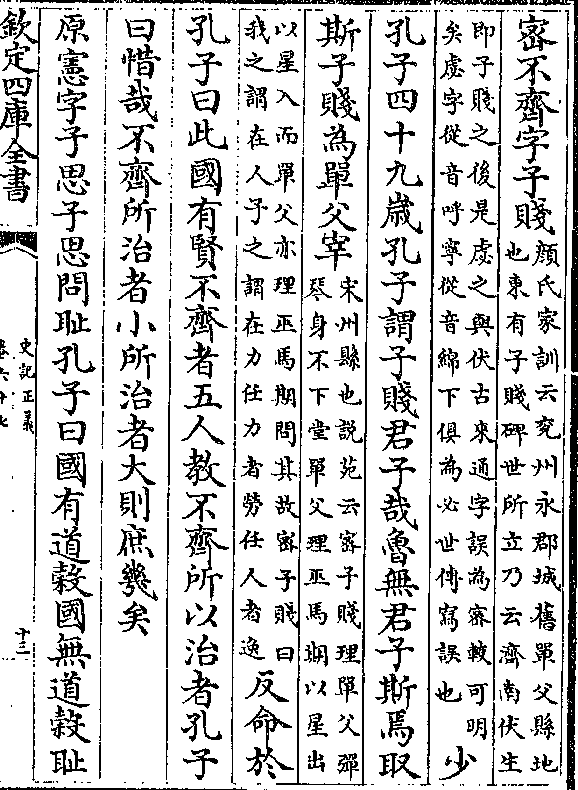 宻不齊字子賤
顔氏家訓云兖州永郡城舊單父縣地
也東有子賤碑世所立乃云濟南伏生
即子賤之後是虙之與伏古來通字誤為宻較可明
矣虙字從音呼寧從音綿下俱為必世傳寫誤也
少
孔子四十九嵗孔子謂子賤君子哉魯無君子斯焉取
斯子賤為單父宰
宋州縣也説苑云宻子賤理單父彈
琴身不下堂單父理巫馬期以星出
以星入而單父亦理巫馬期問其故宻子賤曰
我之謂在人子之謂在力任力者勞任人者逸
反命於
孔子曰此國有賢不齊者五人教不齊所以治者孔子
曰惜哉不齊所治者小所治者大則庶幾矣
原憲字子思子思問耻孔子曰國有道榖國無道榖耻
欽定四庫全書
史記正義
卷六十七
十三